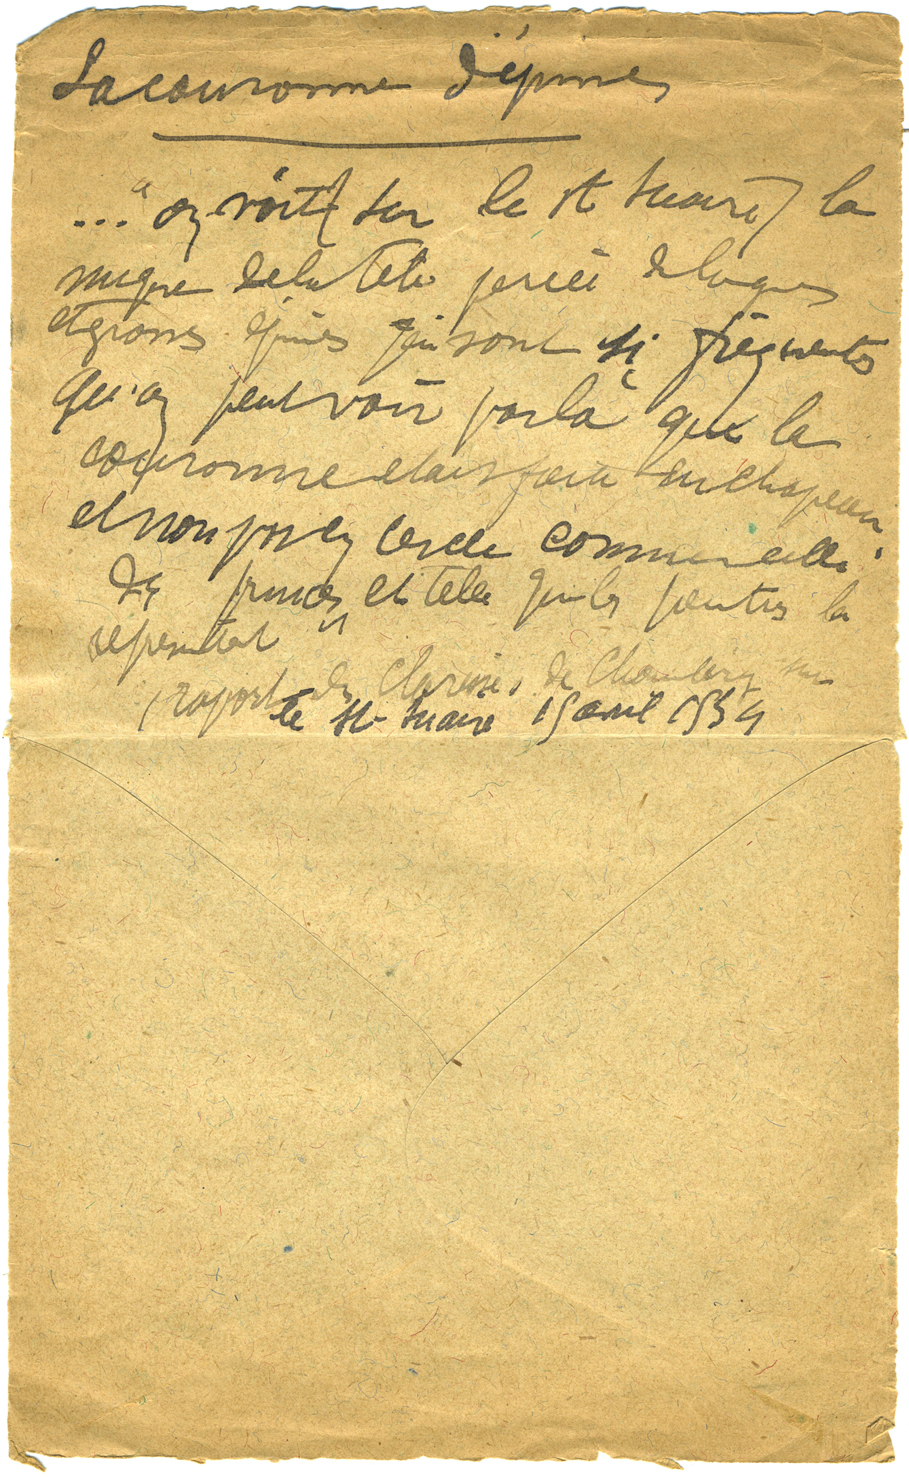 La couronne d'épines
..." on voit (sur le St Suaire) la
nuque de la tête percée de longues
et grosses épines qui sont si fréquentes
qu'on peut voir par là que la
couronne etait faite en chapeau
et non pas en cercle comme celle
des princes et telle que les peintres la
representent "
(raport des Clarisses de Chambery sur
le St Suaire 15 avril 1534